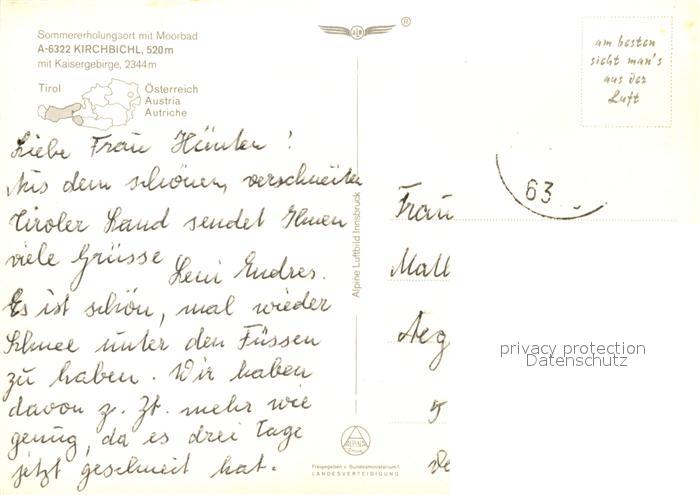 Sommererholungsort mit Moorbad
A-6322 KIRCHBICHL, 520 m
mit Kaisergebirge, 2344 m
Tirol
Österreich
Austria
Autriche
Liebe Frau !
Aus dem schönen, verschneiten
Tiroler Land sendet Ihnen
viele Grüsse
Leni Endres.
Es ist schön, mal wieder
Schnee unter den Füssen
zu haben. Wir haben
davon z. Zt. mehr wie
genug, da es drei Tage
jetzt geschneit hat.
Alpine Luftbild Innsbruck
ALPINE
Freigegeben v. Bundesministerium f.
LANDESVERTEIDIGUNG
®
am besten
sieht man's
aus der
Luft
63
Frau
Matt
Aeg
5
privacy protection
Datenschutz